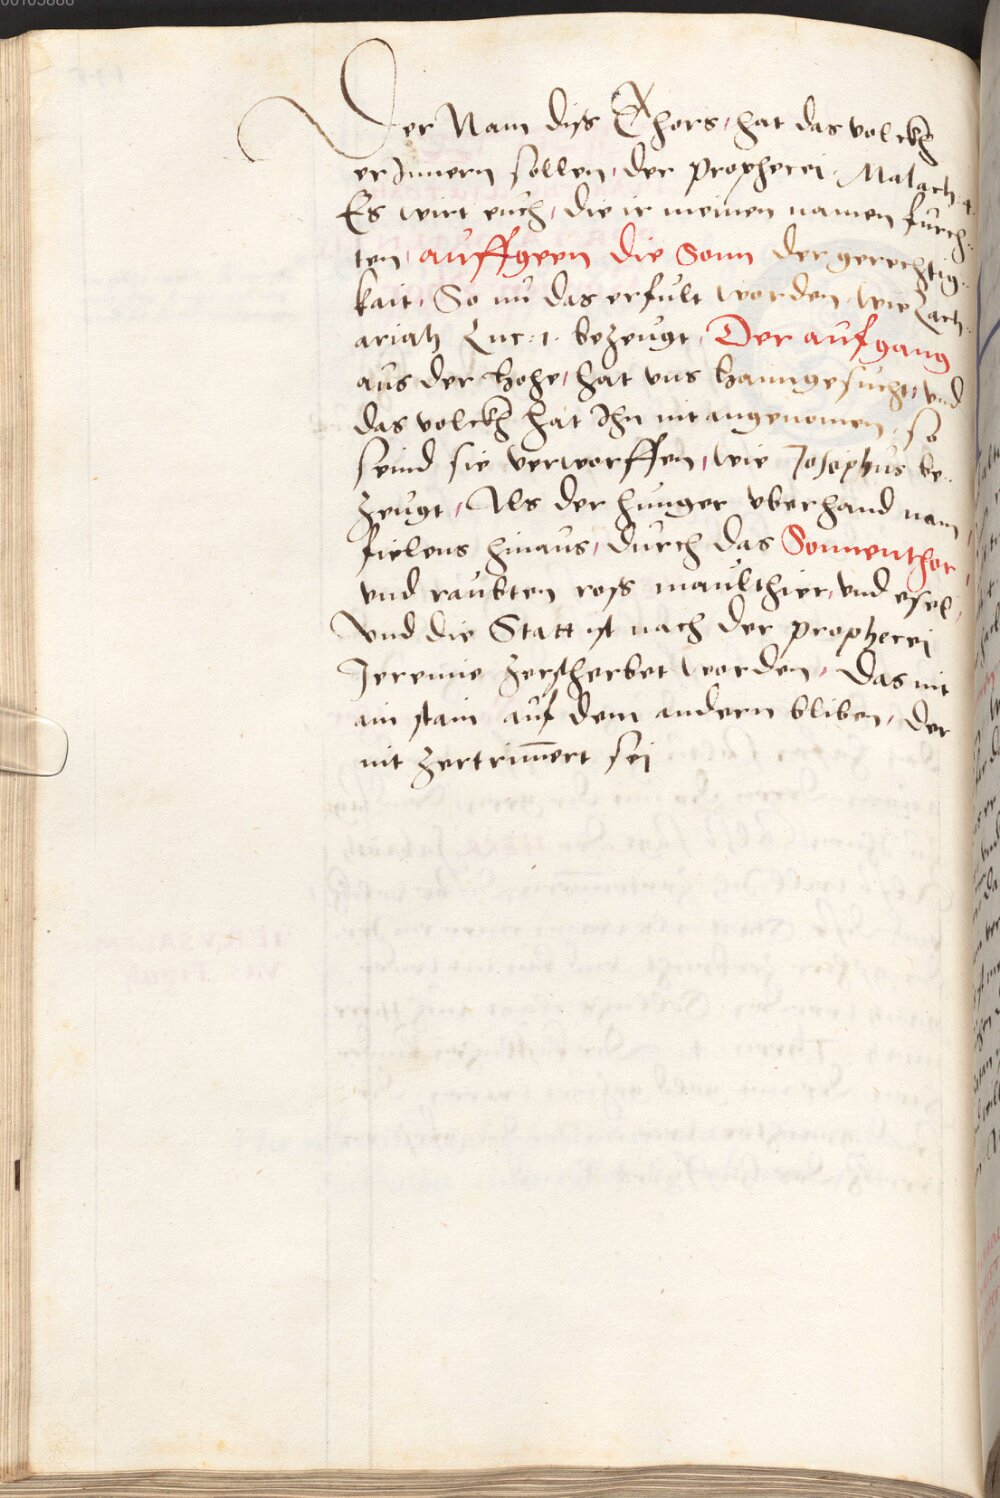 Der Nam diss Thors, hat das volckh
erJnnern sollen, der prophecei, Malach: 4.
Es wirt euch, die ir meinen namen furch:
ten, auffgeen die Sonn der gerechtig:
kait, So nu das erfult worden, wie Zach:
ariah Luc: 1. bezeugt, Der aufgang
aus der Hohe, hat vns haimgesucht, vnd
das volckh hat Jhn nit angenomen, so
seind sie verworffen, wie Josephus be:
zeugt, Als der hunger vberhand nam
fielens hinaus, durch das Sonnenthor,
vnd raubten ross maulthier, vnd esel,
Vnd die Statt ist nach der prophecei
Jeremie zerscherbet worden, Das nit
ain stain auf dem andern bliben, der
nit zertrim̄ert sei